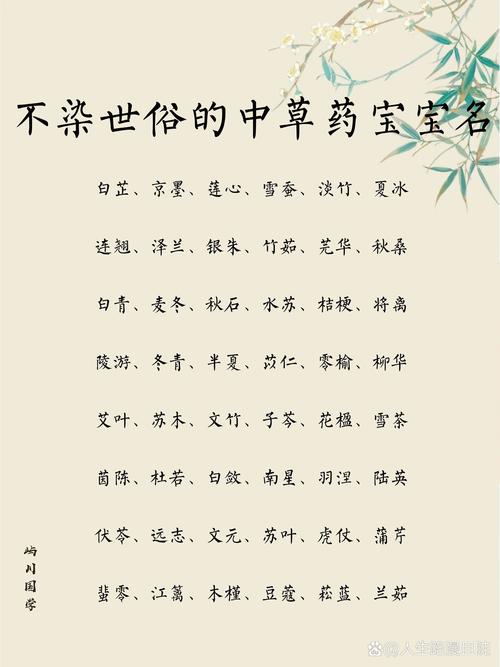 不染世俗的中草药宝宝名
白芷、京墨、莲心、雪蚕、淡竹、夏冰
连翘、泽兰、银朱、竹茹、芫华、秋桑
白青、麦冬、秋石、水苏、桔梗、将离
陵游、冬青、半夏、苡仁、零榆、柳华
艾叶、苏木、文竹、子芩、花楹、雪茶
茵陈、杜若、白敛、南星、羽涅、陆英
伏苓、远志、文元、苏叶、虎仗、蒲芹
蜚零、江蓠、木槿、豆蔻、菘蓝、兰茹
屿川国学
人生路漫日誌